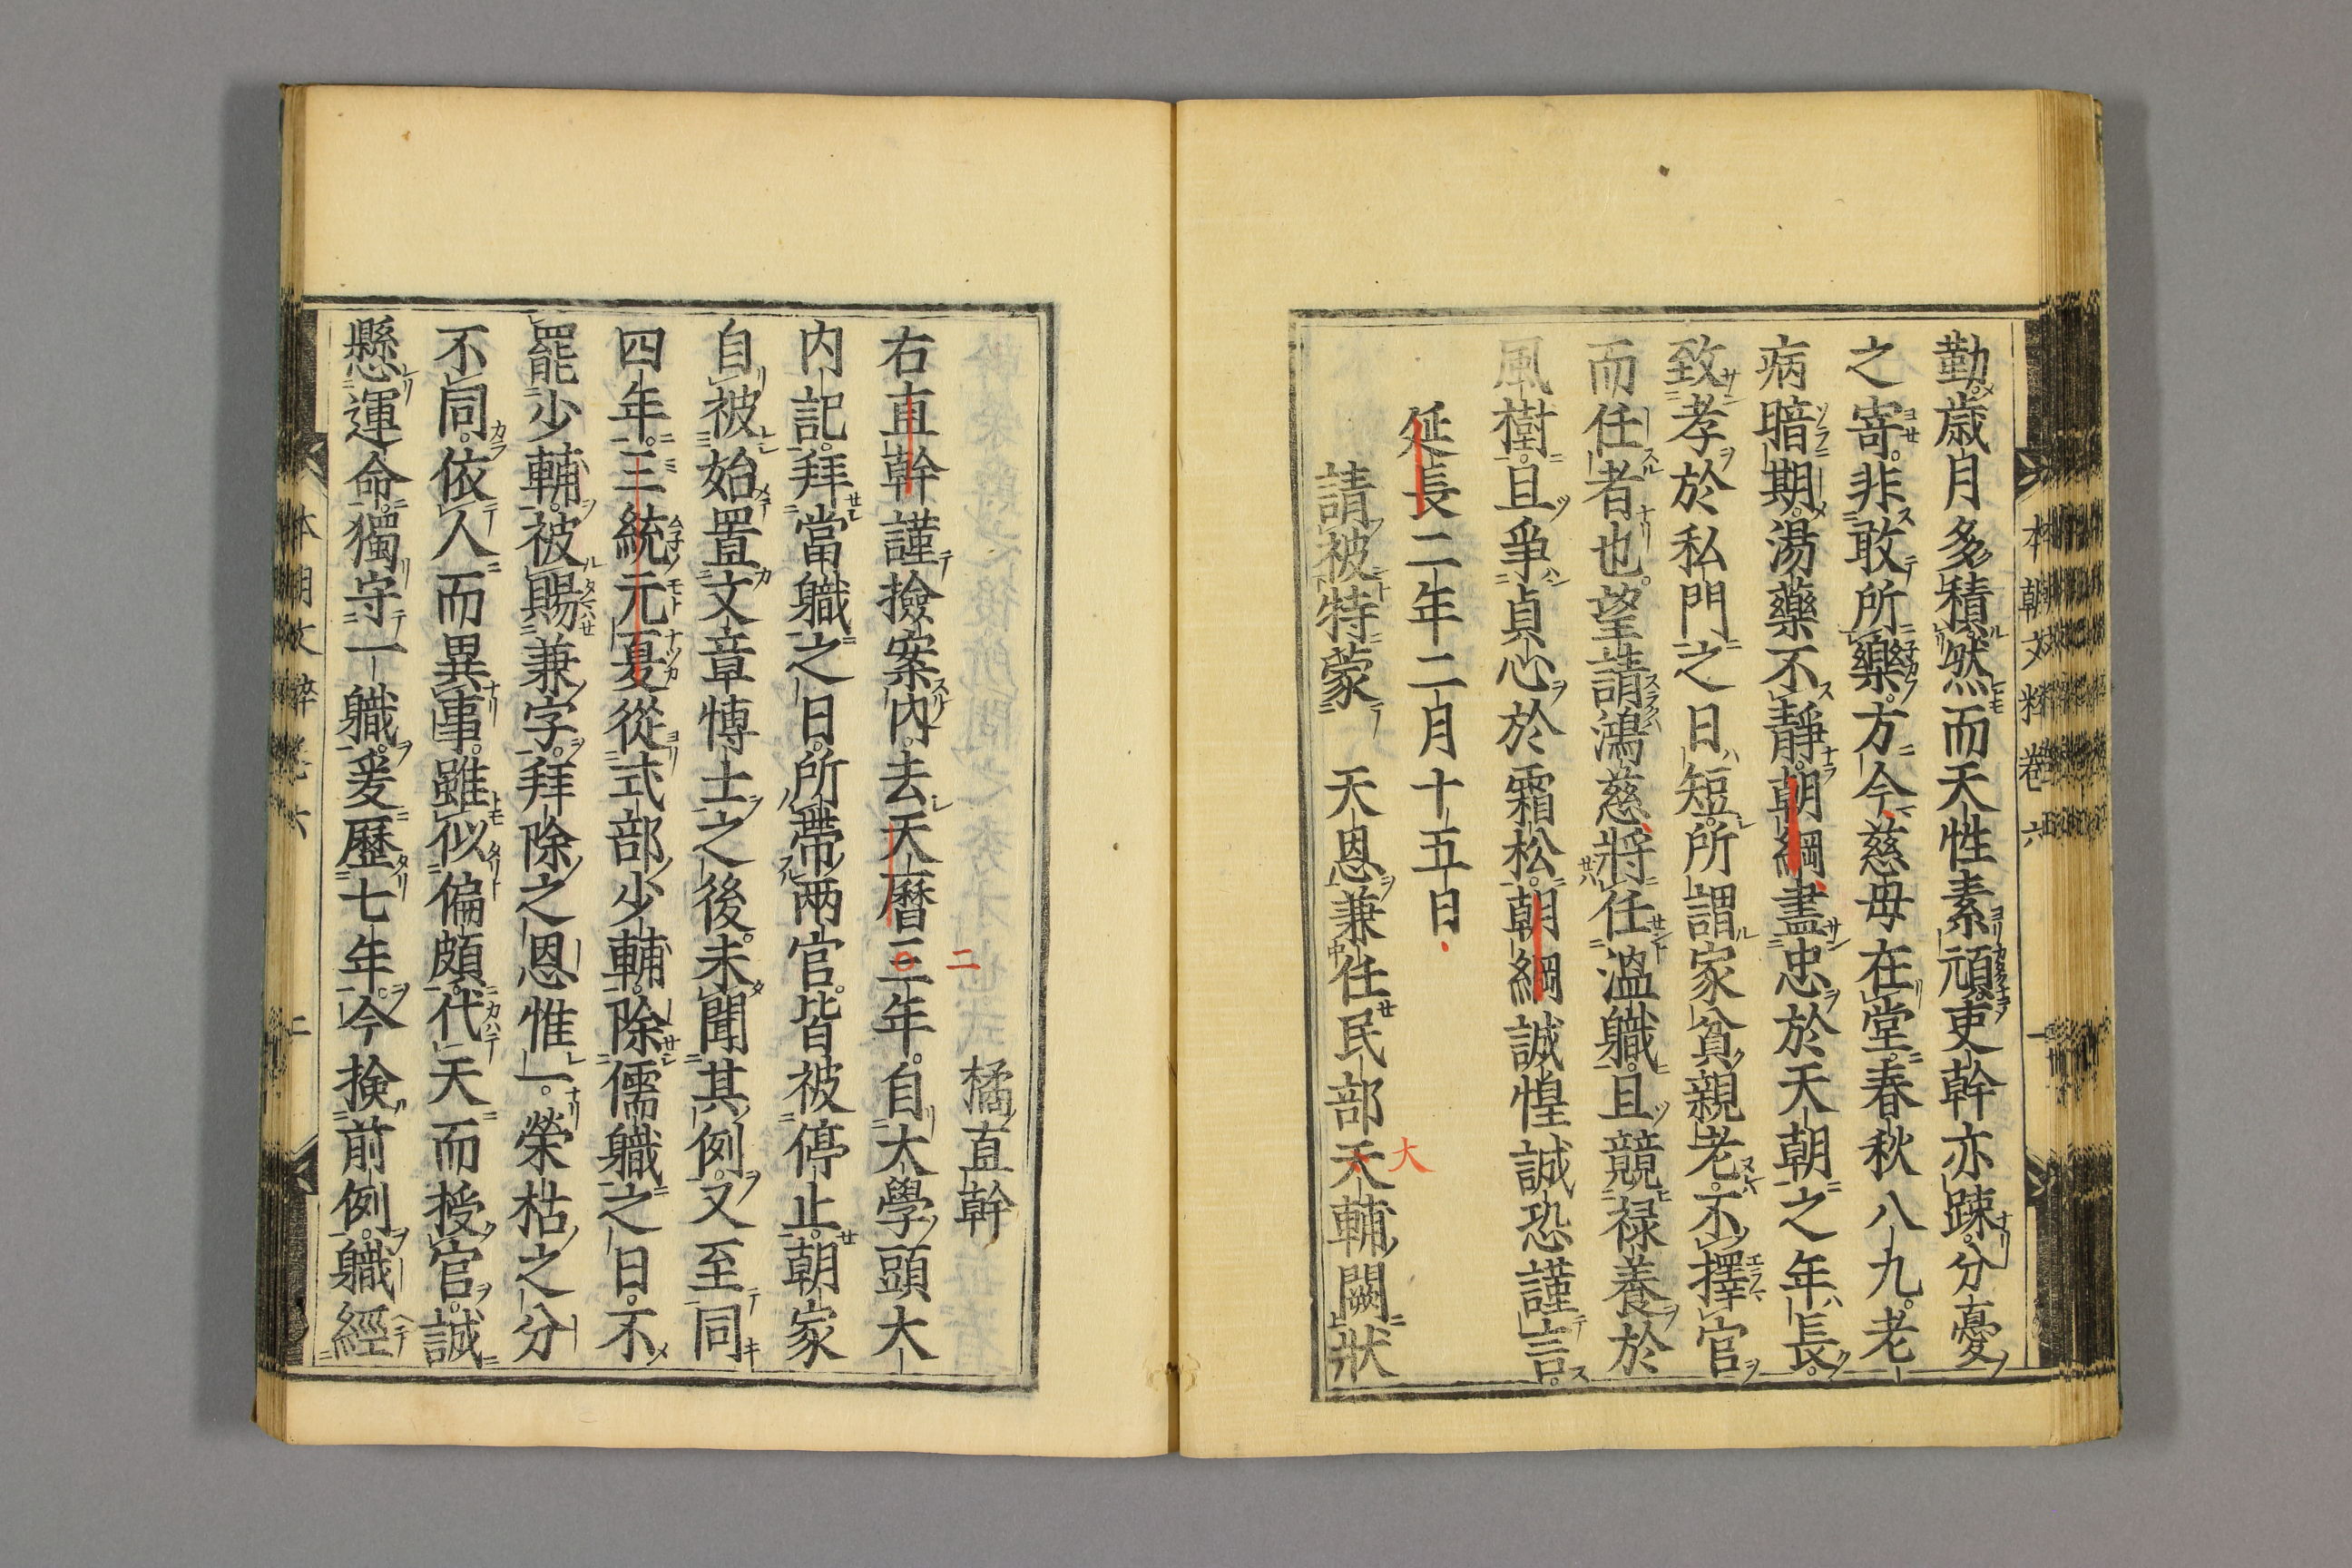 勤歳月多積然而天性素頑吏幹亦踈分憂
之寄非敢所樂方今慈母在堂春秋八九老
病暗期湯藥不靜朝綱盡忠於天朝之年長
致孝於私門之日短所謂家貧親老不擇官
而任者也望請鴻慈將任溫職且競禄養於
風樹且爭貞心於霜松朝綱誠惶誠恐謹言
延長二年二月十五日
請被特蒙 天恩兼任民部天輔闕狀
大
橘直幹
右直幹謹撿案内去天暦三年自大學頭大
二
内記拜當職之日所帶兩官皆被停止朝家
自被始置文章博士之後未聞其例又至同
四年三統元夏從式部少輔除儒職之日不
罷少輔被賜兼字拜除之恩惟一榮枯之分
不同依人而異事雖似偏頗代天而授官誠
懸運命獨守一職爰歷七年今撿前例職經
本朝文粹卷六 一
本朝文粹卷六 二